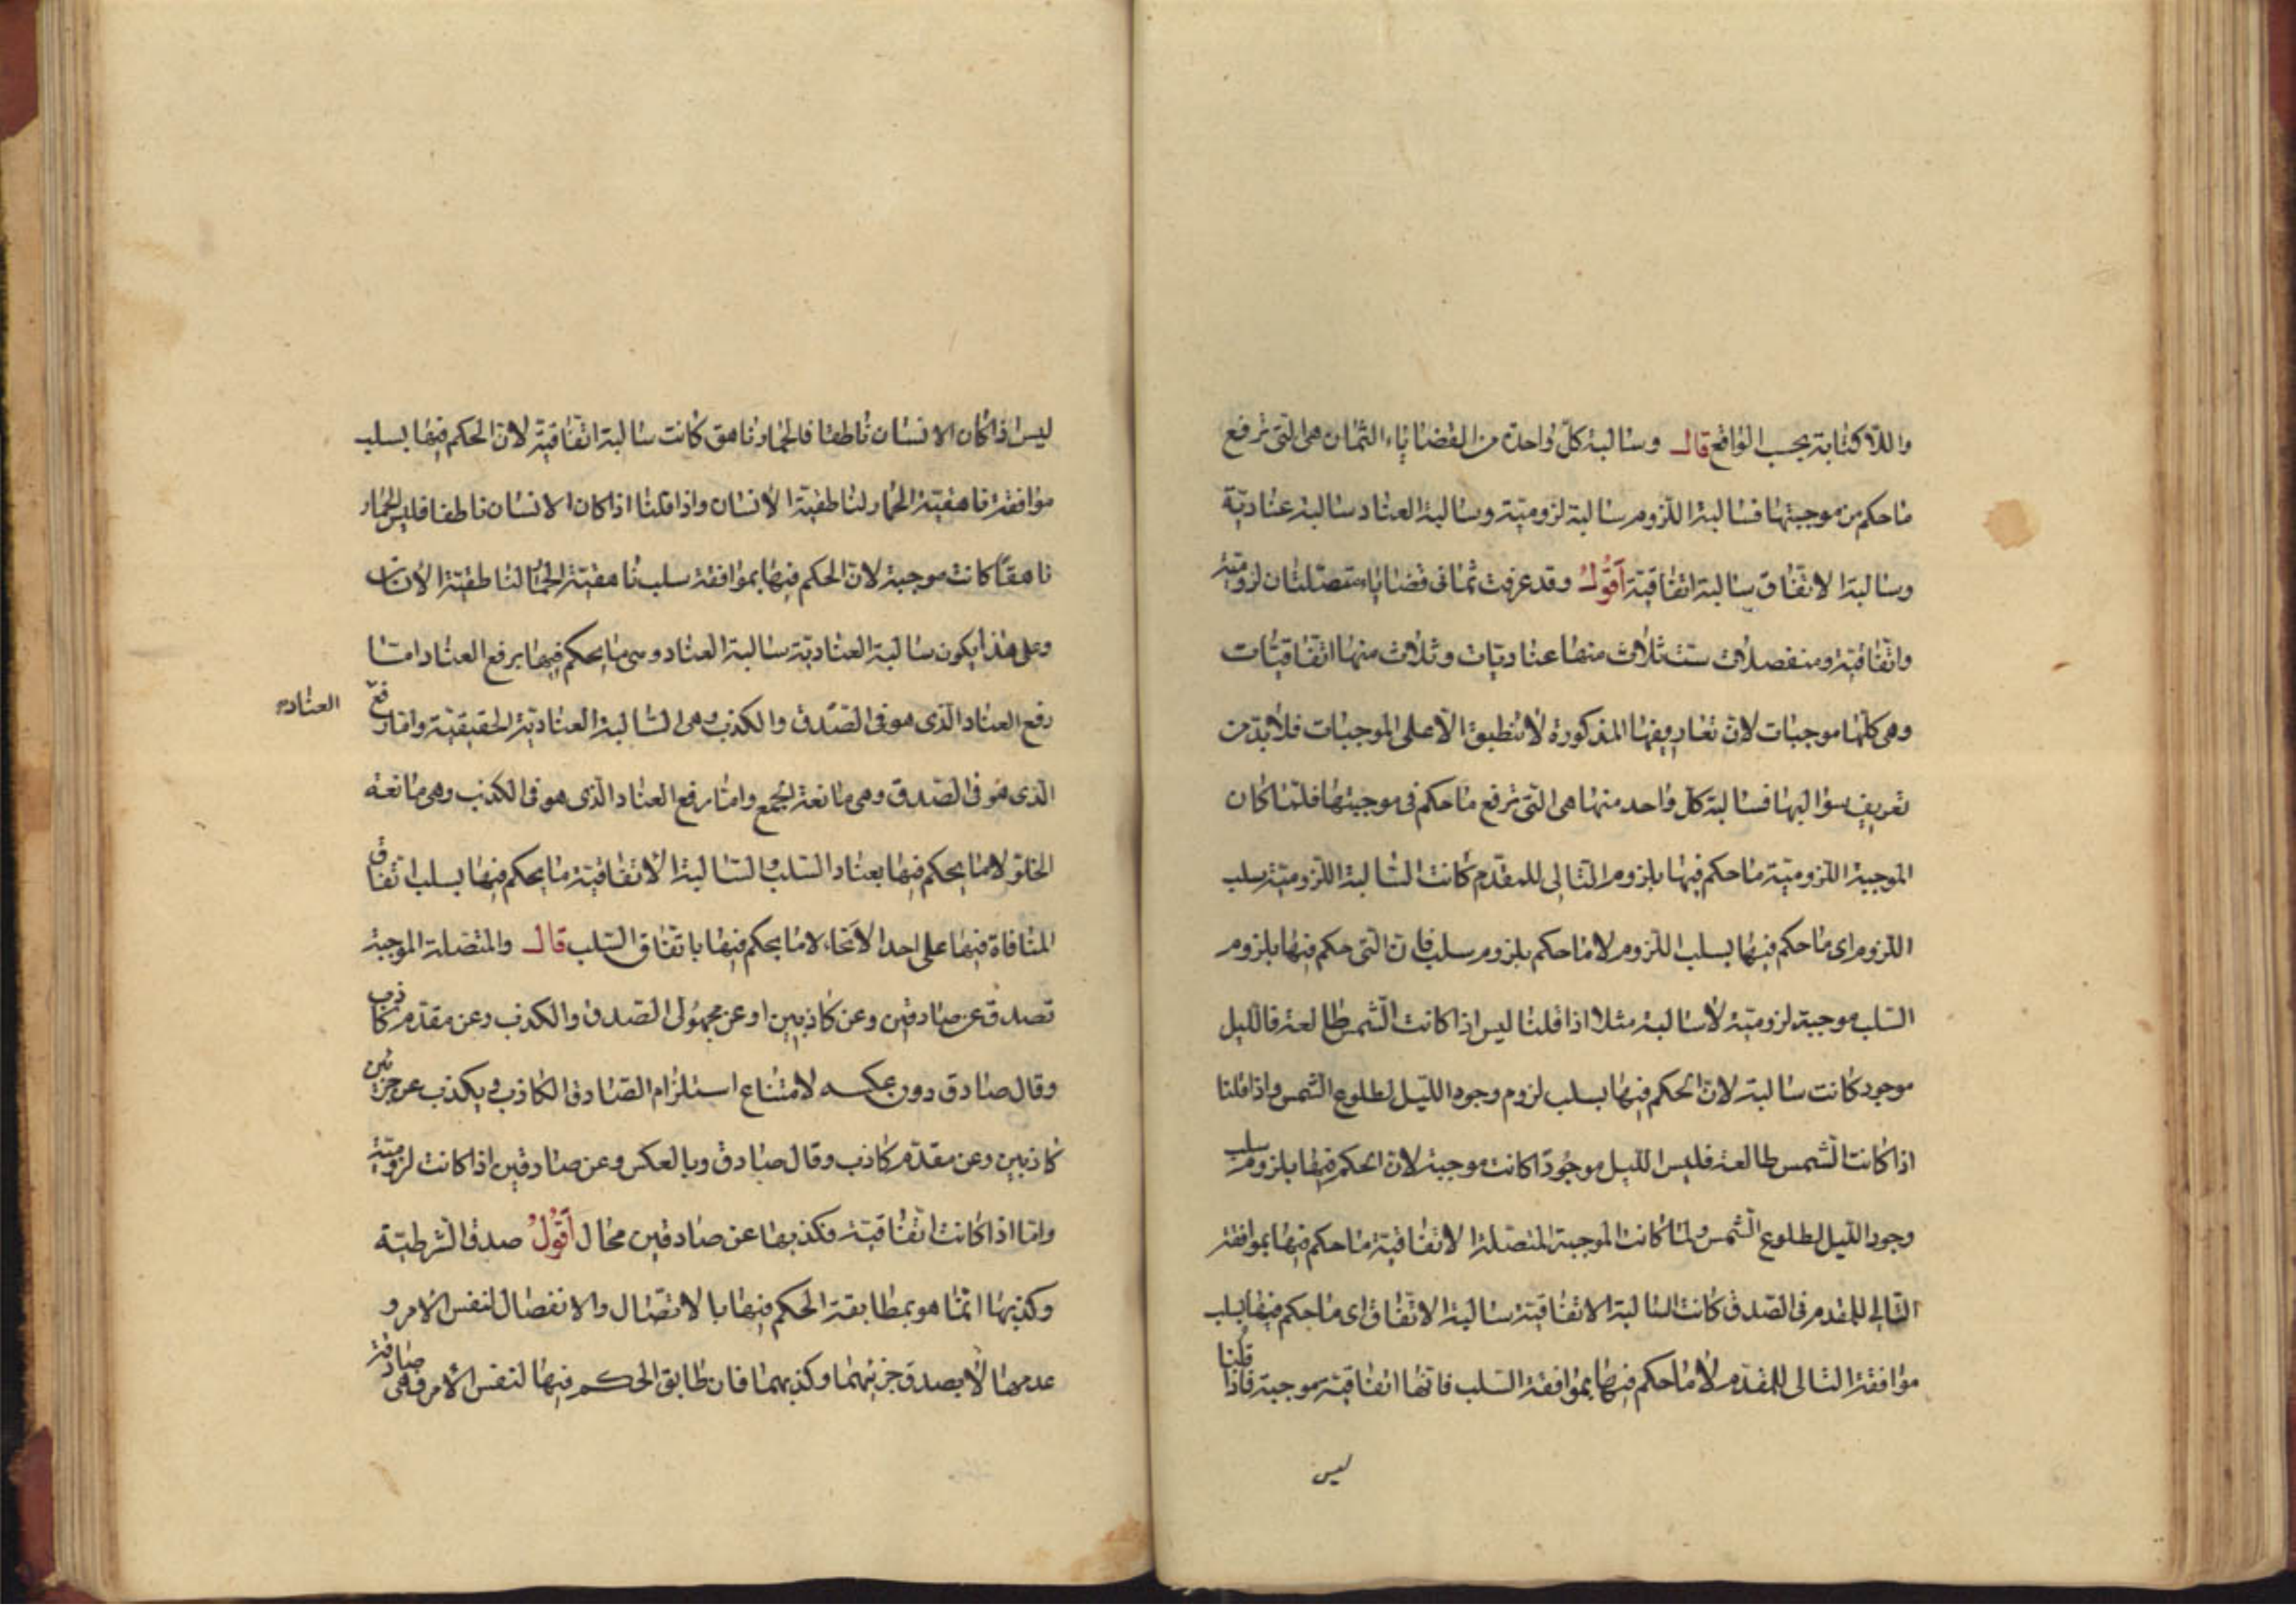 واللا كتابة بحسب الواقع قال وسالبة كل واحدة من القضاياء الثمان هى التى ترفع
ما حكم من موجبتها فسالبة اللزوم سالبة لزومية وسالبة العناد سالبة عنادية
وسالبة الاتفاق سالبة اتفاقية اقول وقد عرفت ثمانى قضاياء متصلتان لزومية
واتفاقية ومنفصلات ست ثلاث منها عناديات وثلاث منها اتفاقيات
وهى كلها موجبات لان تعاريفها المذكورة لا تنطبق الا على الموجبات فلا بد من
تعريف سوالبها فسالبة كل واحد منها هى التى ترفع ما حكم فى موجبتها فلما كان
الموجبة اللزومية ما حكم فيها بلزوم التالى للمقدم كانت السالبة اللزومية سلب
اللزوم اى ما حكم فيها بسلب اللزوم لا ما حكم بلزوم سلب فان التى حكم فيها بلزوم
السلب موجبة لزومية لا سالبة مثلا اذا قلنا ليس اذا كانت الشمس طالعة فالليل
موجود كانت سالبة لان الحكم فيها بسلب لزوم وجود الليل لطلوع الشمس واذا قلنا
اذا كانت الشمس طالعة فليس الليل موجودا كانت موجبة لان الحكم فيها بلزوم سلب
وجود الليل لطلوع الشمس ولما كانت الموجبة المتصلة الاتفاقية ما حكم فيها بموافقة
التالى للمقدم فى الصدق كانت السالبة الاتفاقية سالبة الاتفاق اى ما حكم فيها بسلب
موافقة التالى للمقدم لا ما حكم فيها بموافقة السلب فانها اتفاقية موجبة فاذا قلنا
ليس
ليس اذا كان الانسان ناطقا فالحمار ناهق كانت سالبة اتفاقية لان الحكم فيها بسلب
موافقة ناهقية الحمار لناطقية الانسان واذا قلنا اذا كان الانسان ناطقا فليس الحمار
ناهقا كانت موجبة لان الحكم فيها بموافقة سلب ناهقية الحمار لناطقية الانسان
وعلى هذا يكون سالبة العنادية سالبة العناد وهى ما يحكم فيها برفع العناد اما
رفع العناد الذى هو فى الصدق والكذب وهى السالبة العنادية الحقيقية واما رفع
العناد
الذى هو فى الصدق وهى مانعة الجمع واما رفع العناد الذى هو فى الكذب وهى مانعة
الخلو لا ما يحكم فيها بعناد السلب والسالبة الاتفاقية ما يحكم فيها بسلب اتفاق
المنافاة فيها على احد الانحاء لا ما يحكم فيها باتفاق السلب قال والمتصلة الموجبة
تصدق عن صادقين وعن كاذبين او عن مجهولى الصدق والكذب وعن مقدم كاذب
وقال صادق دون عكسه لامتناع استلزام الصادق الكاذب ويكذب عن جزئين
كاذبين وعن مقدم كاذب وقال صادق وبالعكس وعن صادقين اذا كانت لزومية
واما اذا كانت اتفاقية فكذبها عن صادقين محال اقول صدق الشرطية
وكذبها انما هو بمطابقة الحكم فيها بالاتصال والانفصال لنفس الامر و
عدمها لا بصدق جزئيهما وكذبهما فان طابق الحكم فيها لنفس الامر فهى صادقة